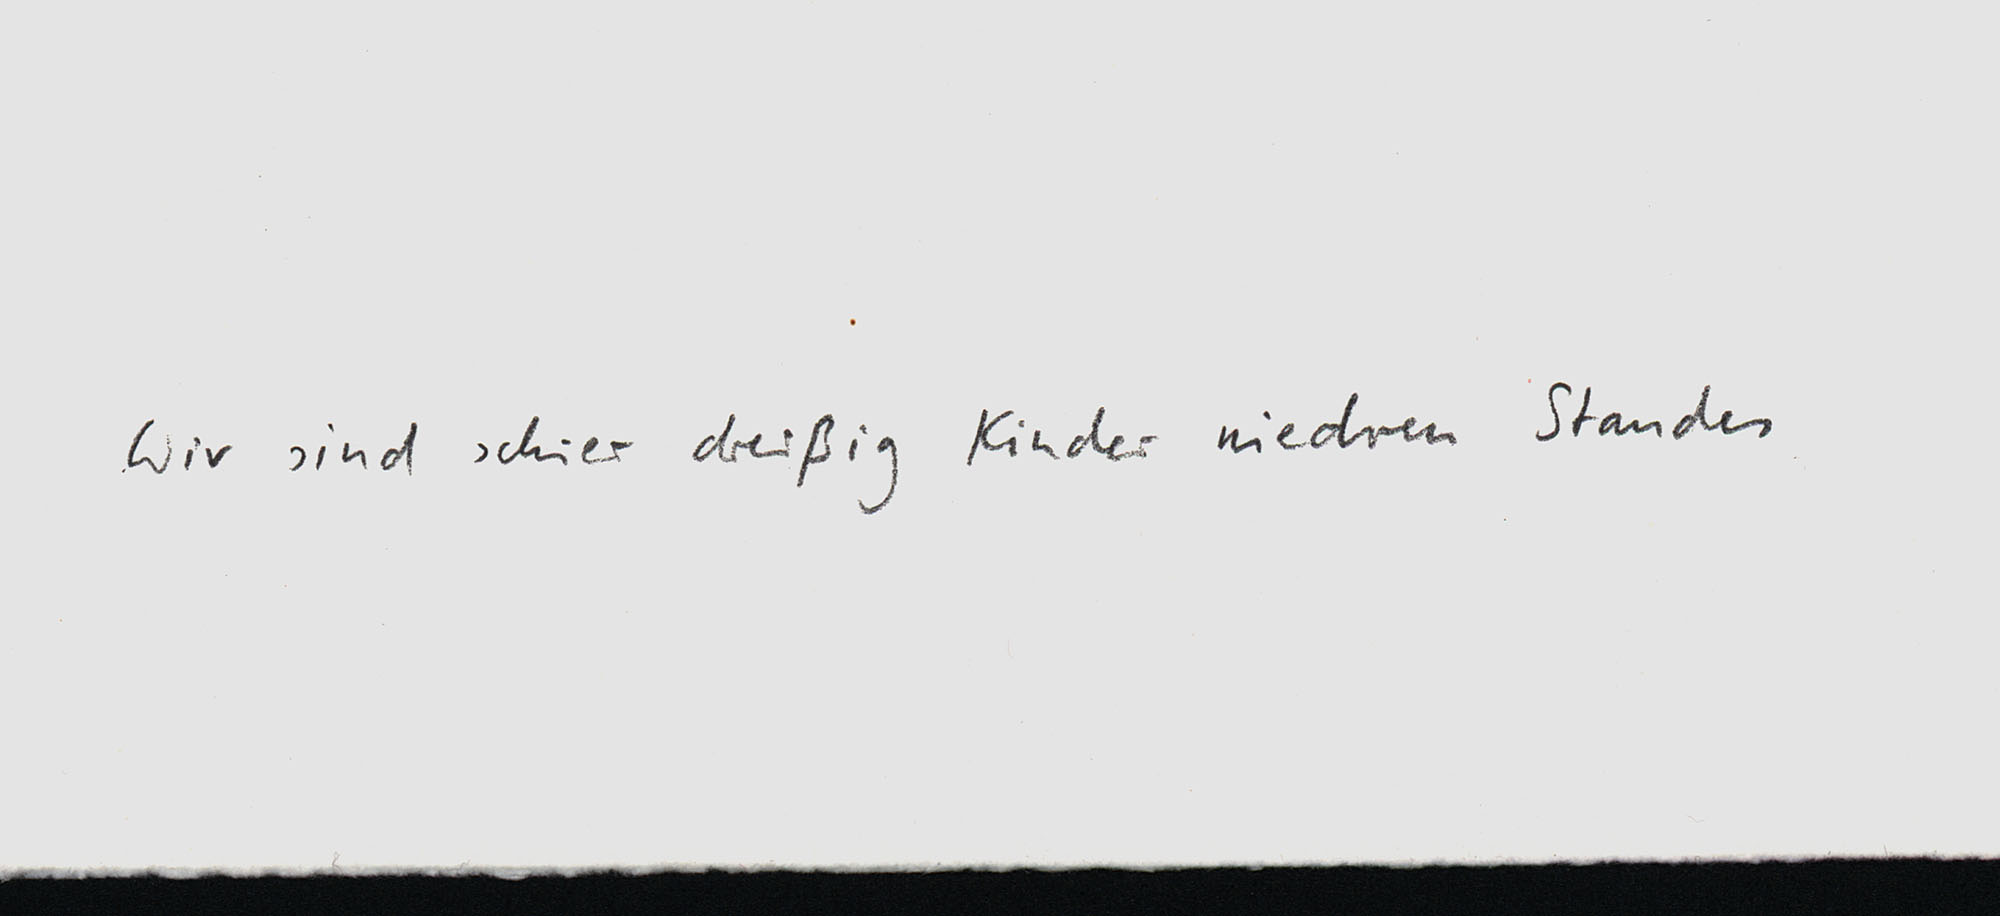 Wir sind schier dreißig Kinder niedren Standes